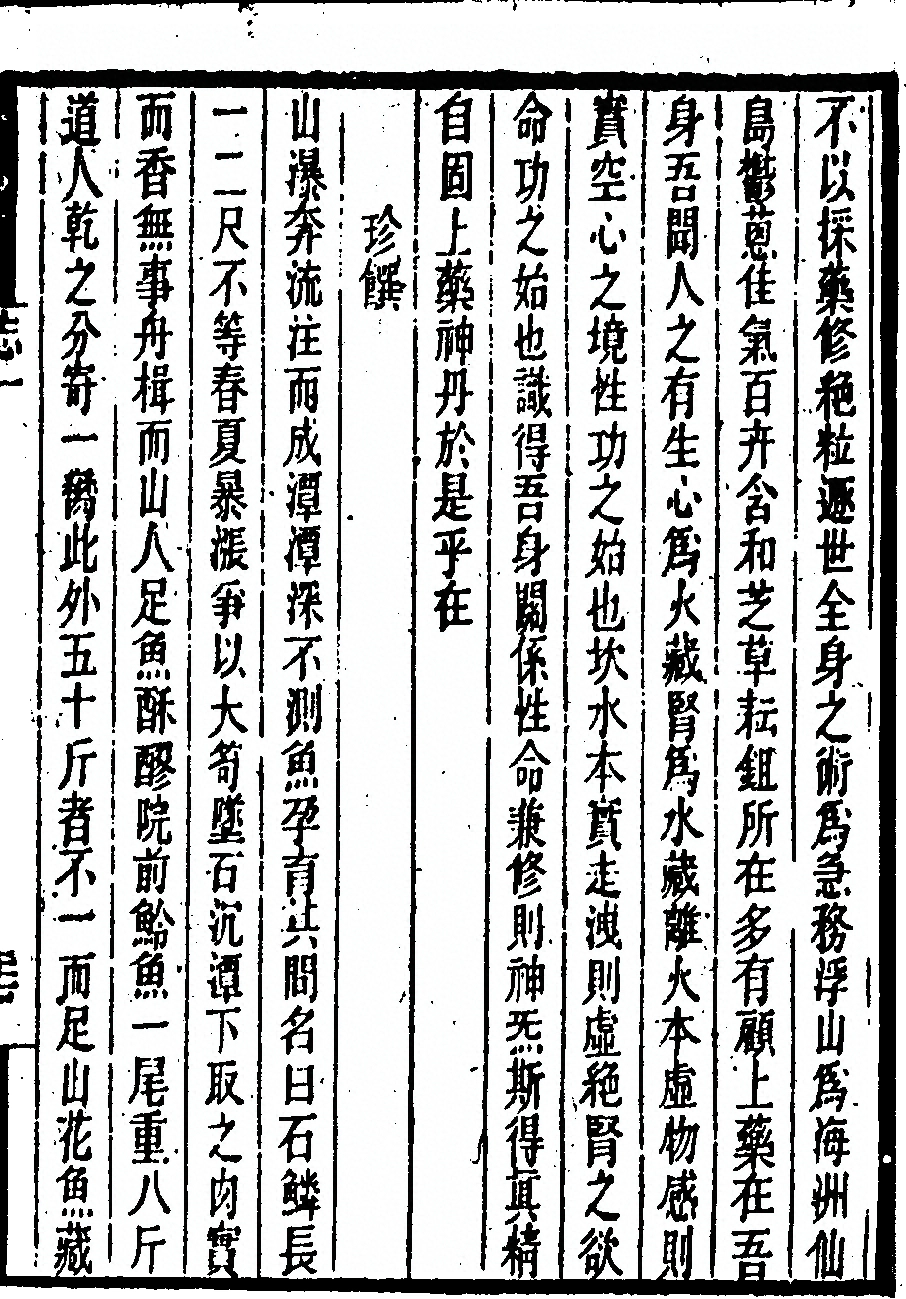 不以採藥修絶粒遯世全身之術爲急務浮山爲海洲仙
島鬱蔥佳氣百卉含和芝草耘鉏所在多有顧上藥在吾
身吾聞人之有生心爲火藏腎爲水藏離火本虛物感則
實空心之境性功之始也坎水本實走洩則虛絶腎之欲
命功之始也識得吾身關係性命兼修則神炁斯得真精
自固上藥神丹於是乎在
珍饌
山瀑奔流注而成潭潭深不測魚孕育其間名曰石鱗長
一二尺不等春夏暴漲爭以大笱墜石沉潭下取之肉實
而香無事舟楫而山人足魚酥醪院前鯰魚一尾重八斤
道人乾之分寄一臠此外五十斤者不一而足山花魚藏
志一